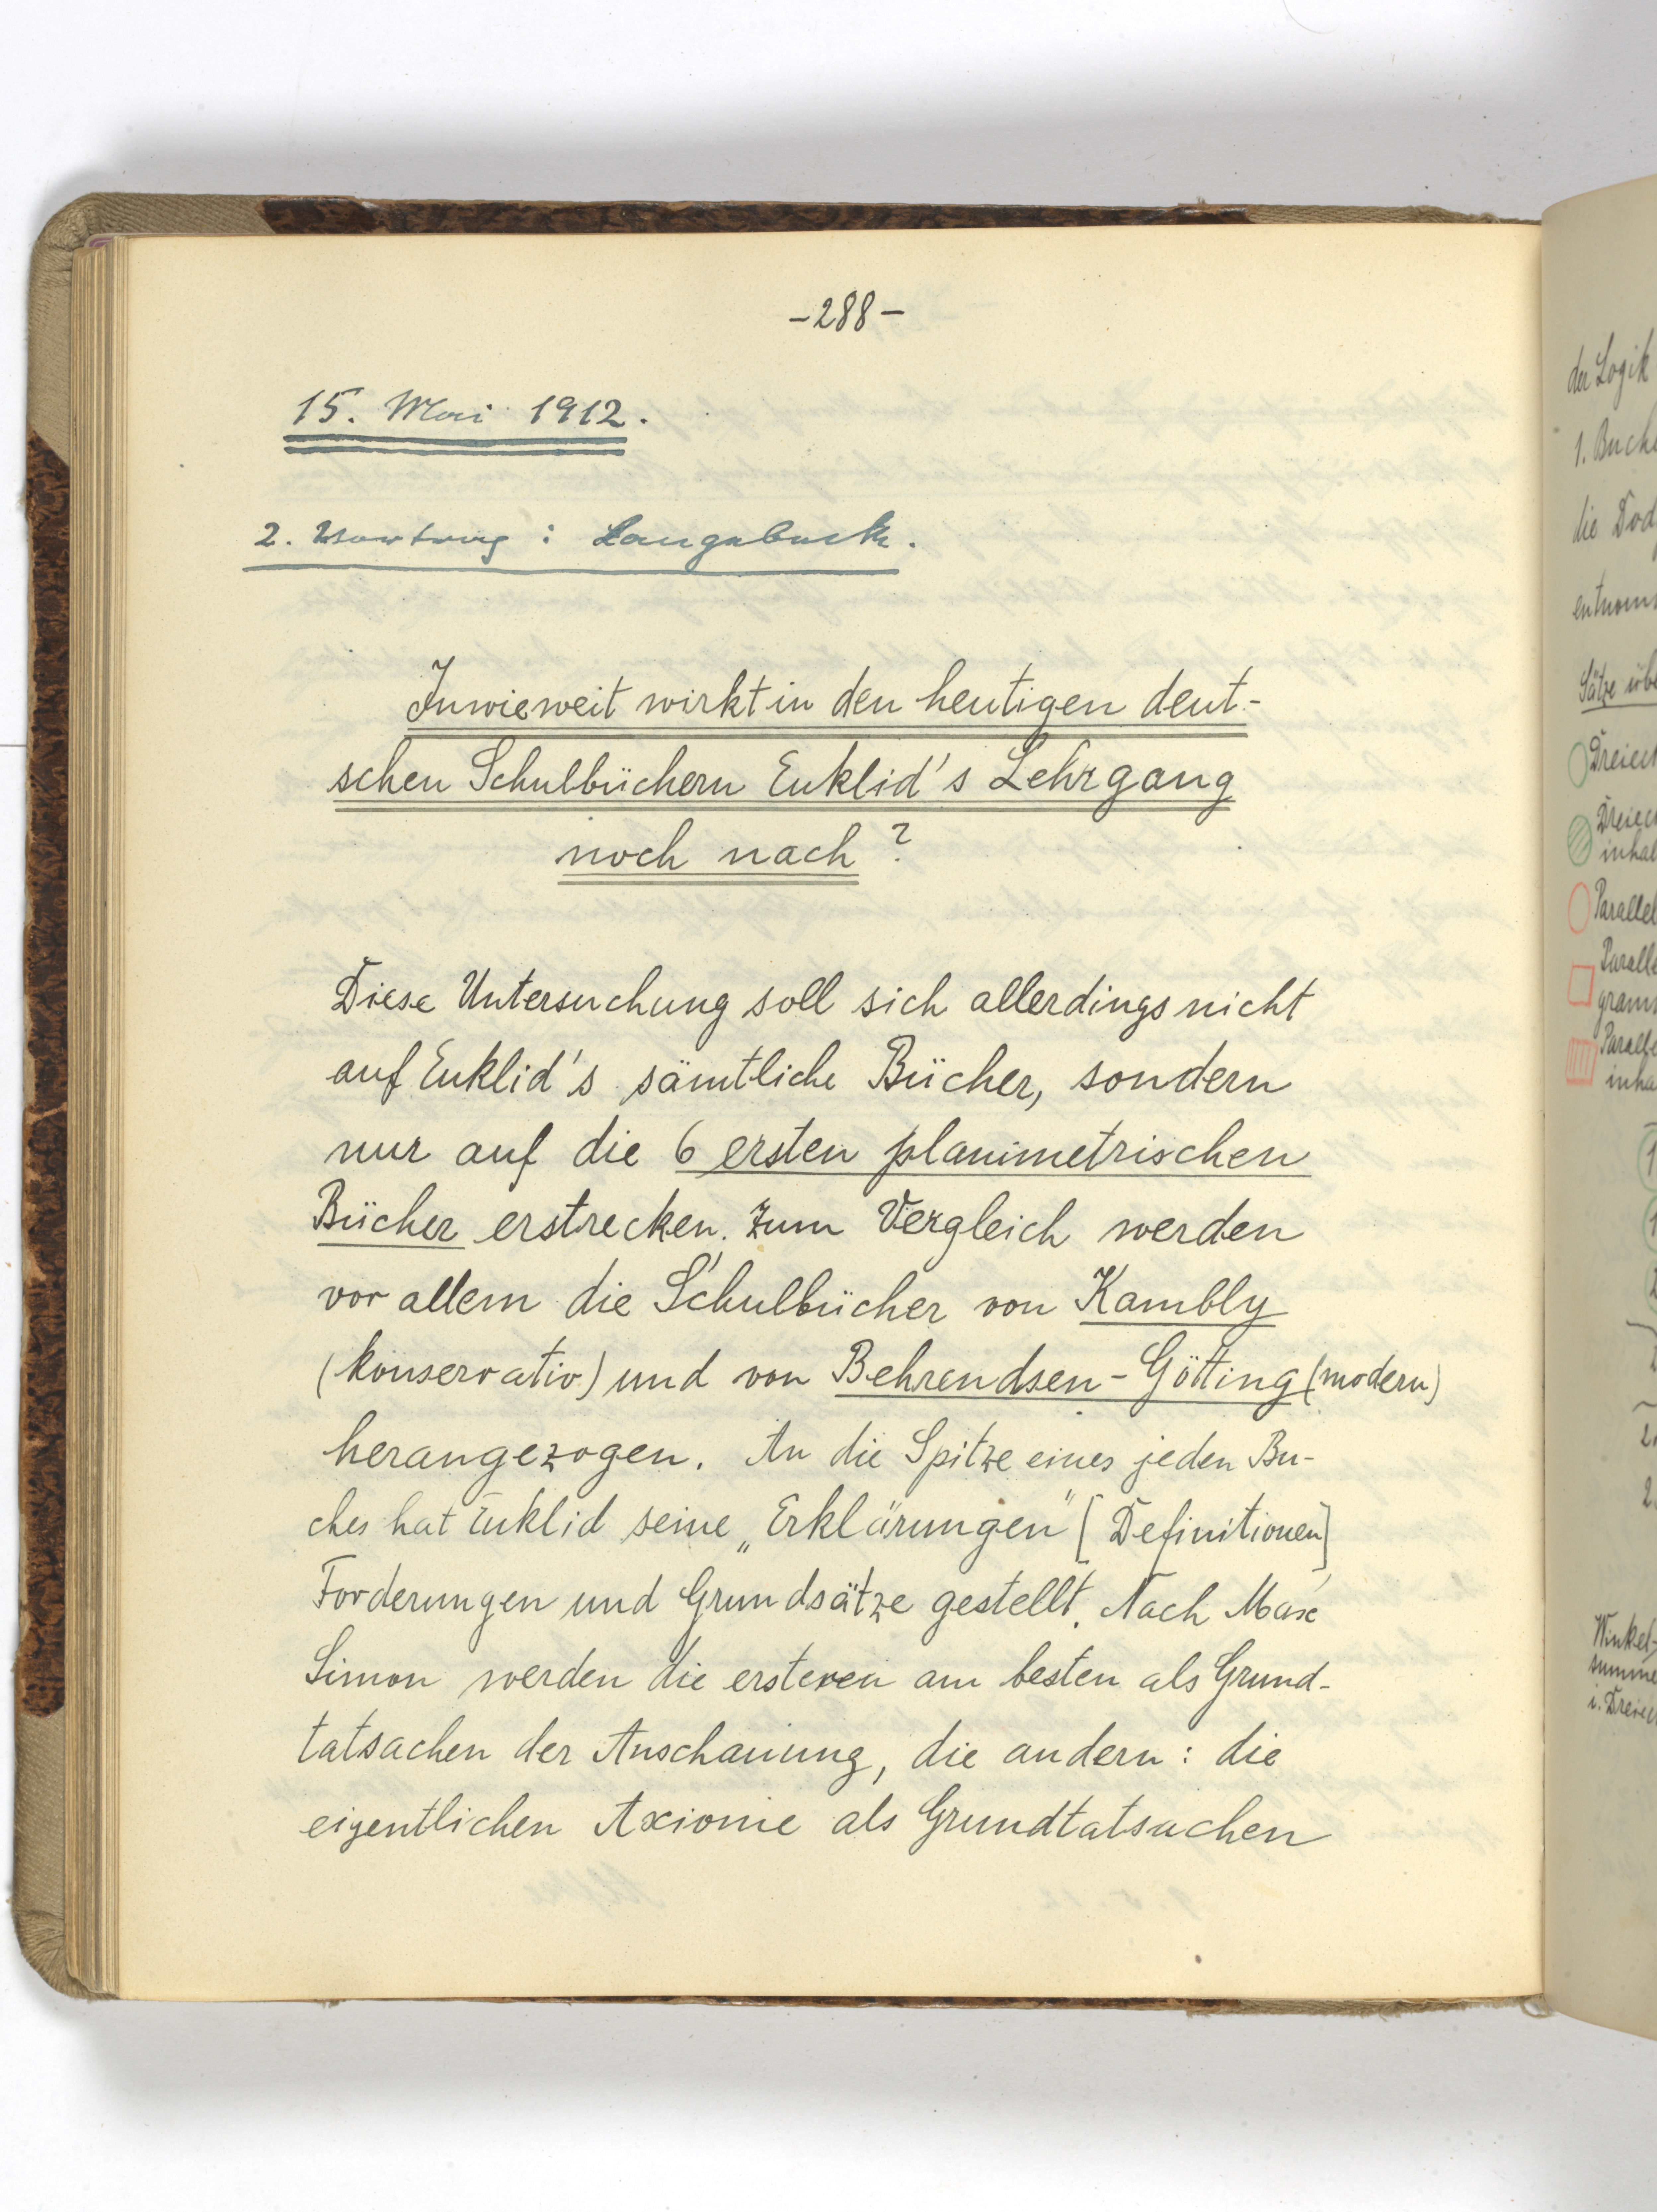 -288-
15. Mai 1912.
2. Vortrag: Langebeck.
Inwieweit wirkt in den heutigen deut-
schen Schulbüchern Euklid's Lehrgang
noch nach?
Diese Untersuchung soll sich allerdings nicht
auf Euklid's sämtliche Bücher, sondern
nur auf die 6 ersten planimetrischen
Bücher erstrecken. Zum Vergleich werden
vor allem die Schulbücher von Kambly
(konservativ) und von Behrendsen-Götting (modern)
herangezogen. An die Spitze eines jeden Bu-
ches hat Euklid seine „Erklärungen" [Definitionen],
Forderungen und Grundsätze gestellt. Nach Max
Simon werden die ersteren am besten als Grund-
tatsachen der Anschauung, die andern: die
eigentlichen Axiome als Grundtatsachen
der Logik
1. Buch
die
Sätze
Winkel-
summe